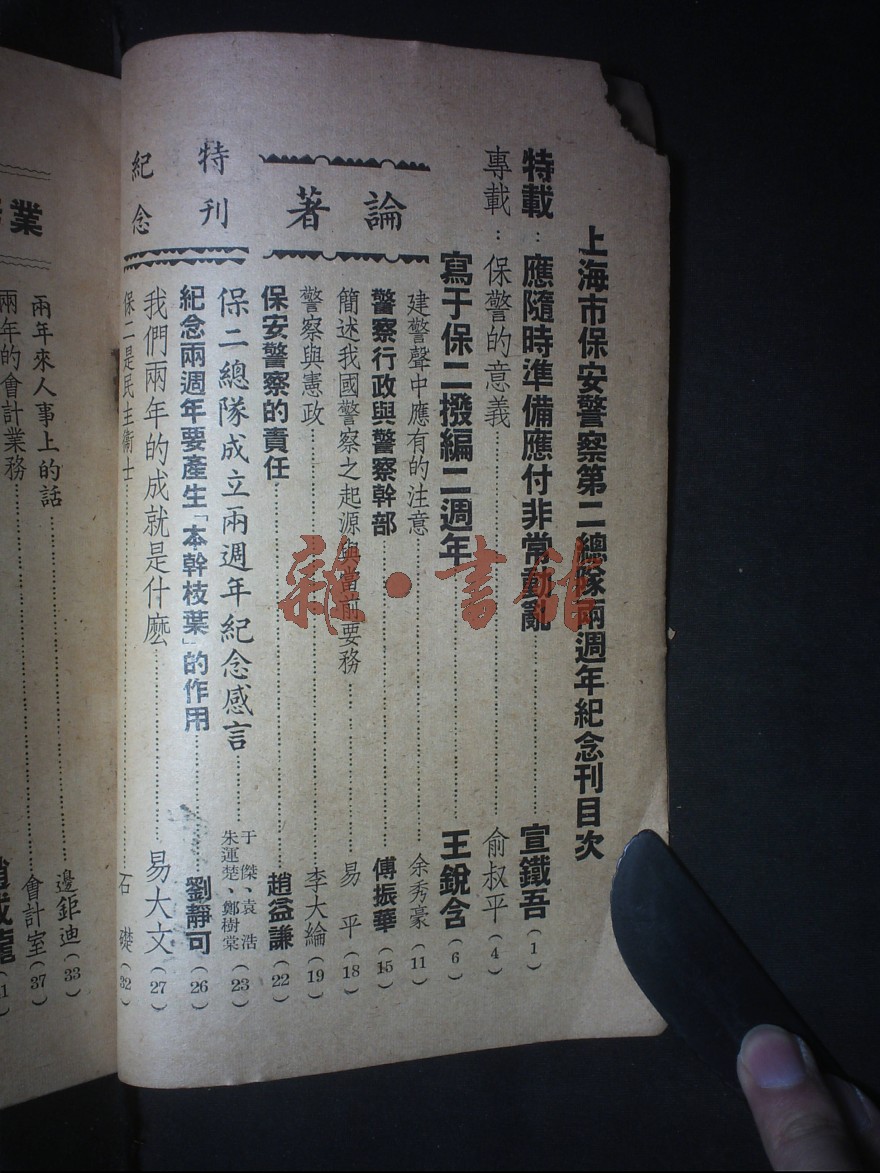 上海市保安警察第二總隊兩週年紀念刊目次
特載：應隨時準備應付非常動亂……宣鐵吾（1）
專載：保警的意義……俞叔平（4）
寫于保二撥編二週年……王銳含（6）
論著
建警聲中應有的注意……余秀豪（11）
警察行政與警察幹部……傅振華（15）
簡述我國警察之起源與當前要務……易平（18）
警察與憲政……李大綸（19）
保安警察的責任……趙益謙（22）
特刊
紀念
保二總隊成立兩週年紀念感言……于傑、袁浩
朱運楚、鄭樹棠（23）
紀念兩週年要產生「本幹枝葉」的作用……劉靜可（26）
我們兩年的成就是什麼……易大文（27）
保二是民主衞士……石礎（32）
業
兩年來人事上的話……邊鉅迪（33）
兩年的會計業務……會計室（37）
雜·書館